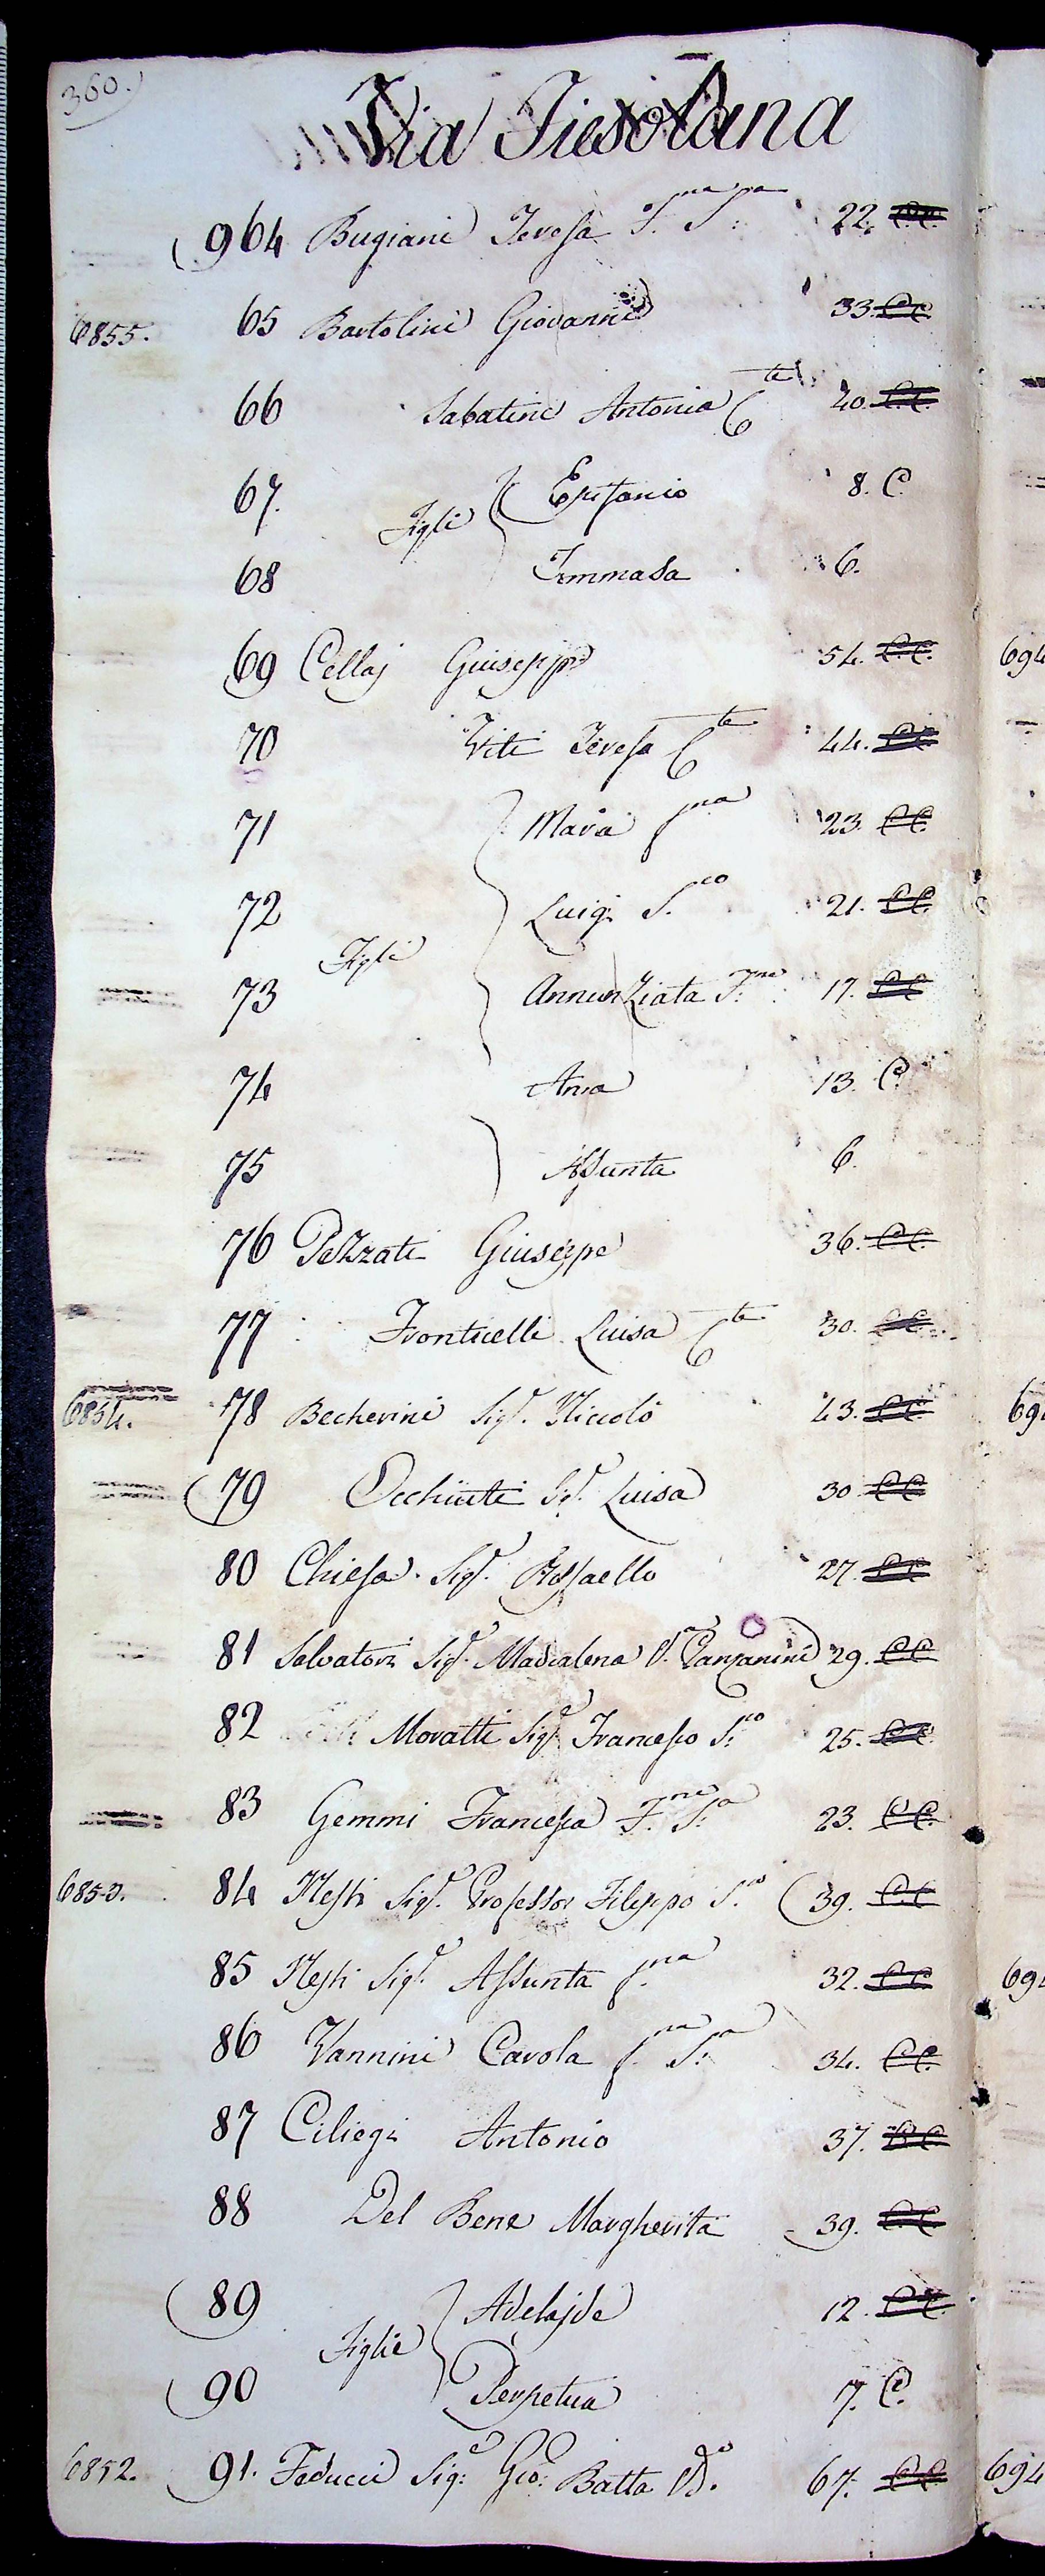 360.
Via Fiesolana
964 Bugiani Teresa F.na S.va 22. C.C.
6855. 65 Bartolini Giovanni 33. C.C.
66 Sabatini Antonia C.te 40. C.C.
67. Epifanio 8. C.
Figli
68 Tommasa 6.
69 Cellaj Giuseppe 54. C.C. 694
70 Viti Teresa C.te 44. C.C.
71 Maria f.na 23. C.C.
72 Luigi S.co 21. C.C.
Figli
73 Annunziata F.na 17. C.C.
74 Anna 13. C.
75 Assunta 6.
76 Pezzati Giuseppe 36. C.C.
77 Fronticelli Luisa C.te 30. C.C.
6854. 78 Becherini Sig.r Niccolò 43. C.C. 69
79 Occhiuti Sig.ra Luisa 30 C.C.
80 Chiesa Sig.r Raffaello 27. C.C.
81 Salvatori Sig.ra Madalena V.a Panzanini 29. C.C.
82 Moratti Sig.r Francesco S.co 25. C.C.
83 Gemmi Francesca F.na S.a 23. C.C.
6853. 84 Nesti Sig.r Professor Filippo S.co 39. C.C.
85 Nesti Sig.ra Assunta f.na 32. C.C. 694
86 Vannini Carola f.na S.a 34. C.C.
87 Ciliegi Antonio 37. C.C.
88 Del Bene Margherita 39. C.C.
89 Adelajde 12. C.C.
Figlie
90 Perpetua 7. C.
6852. 91. Feducci Sig.r Gio: Batta V.o 67. C.C. 694